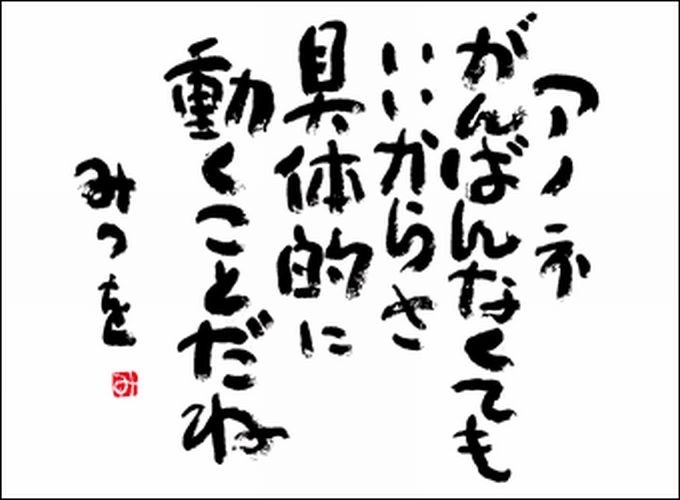 アノネ
がんばんなくても
いいからさ
具体的に
動くことだね
みつを
み